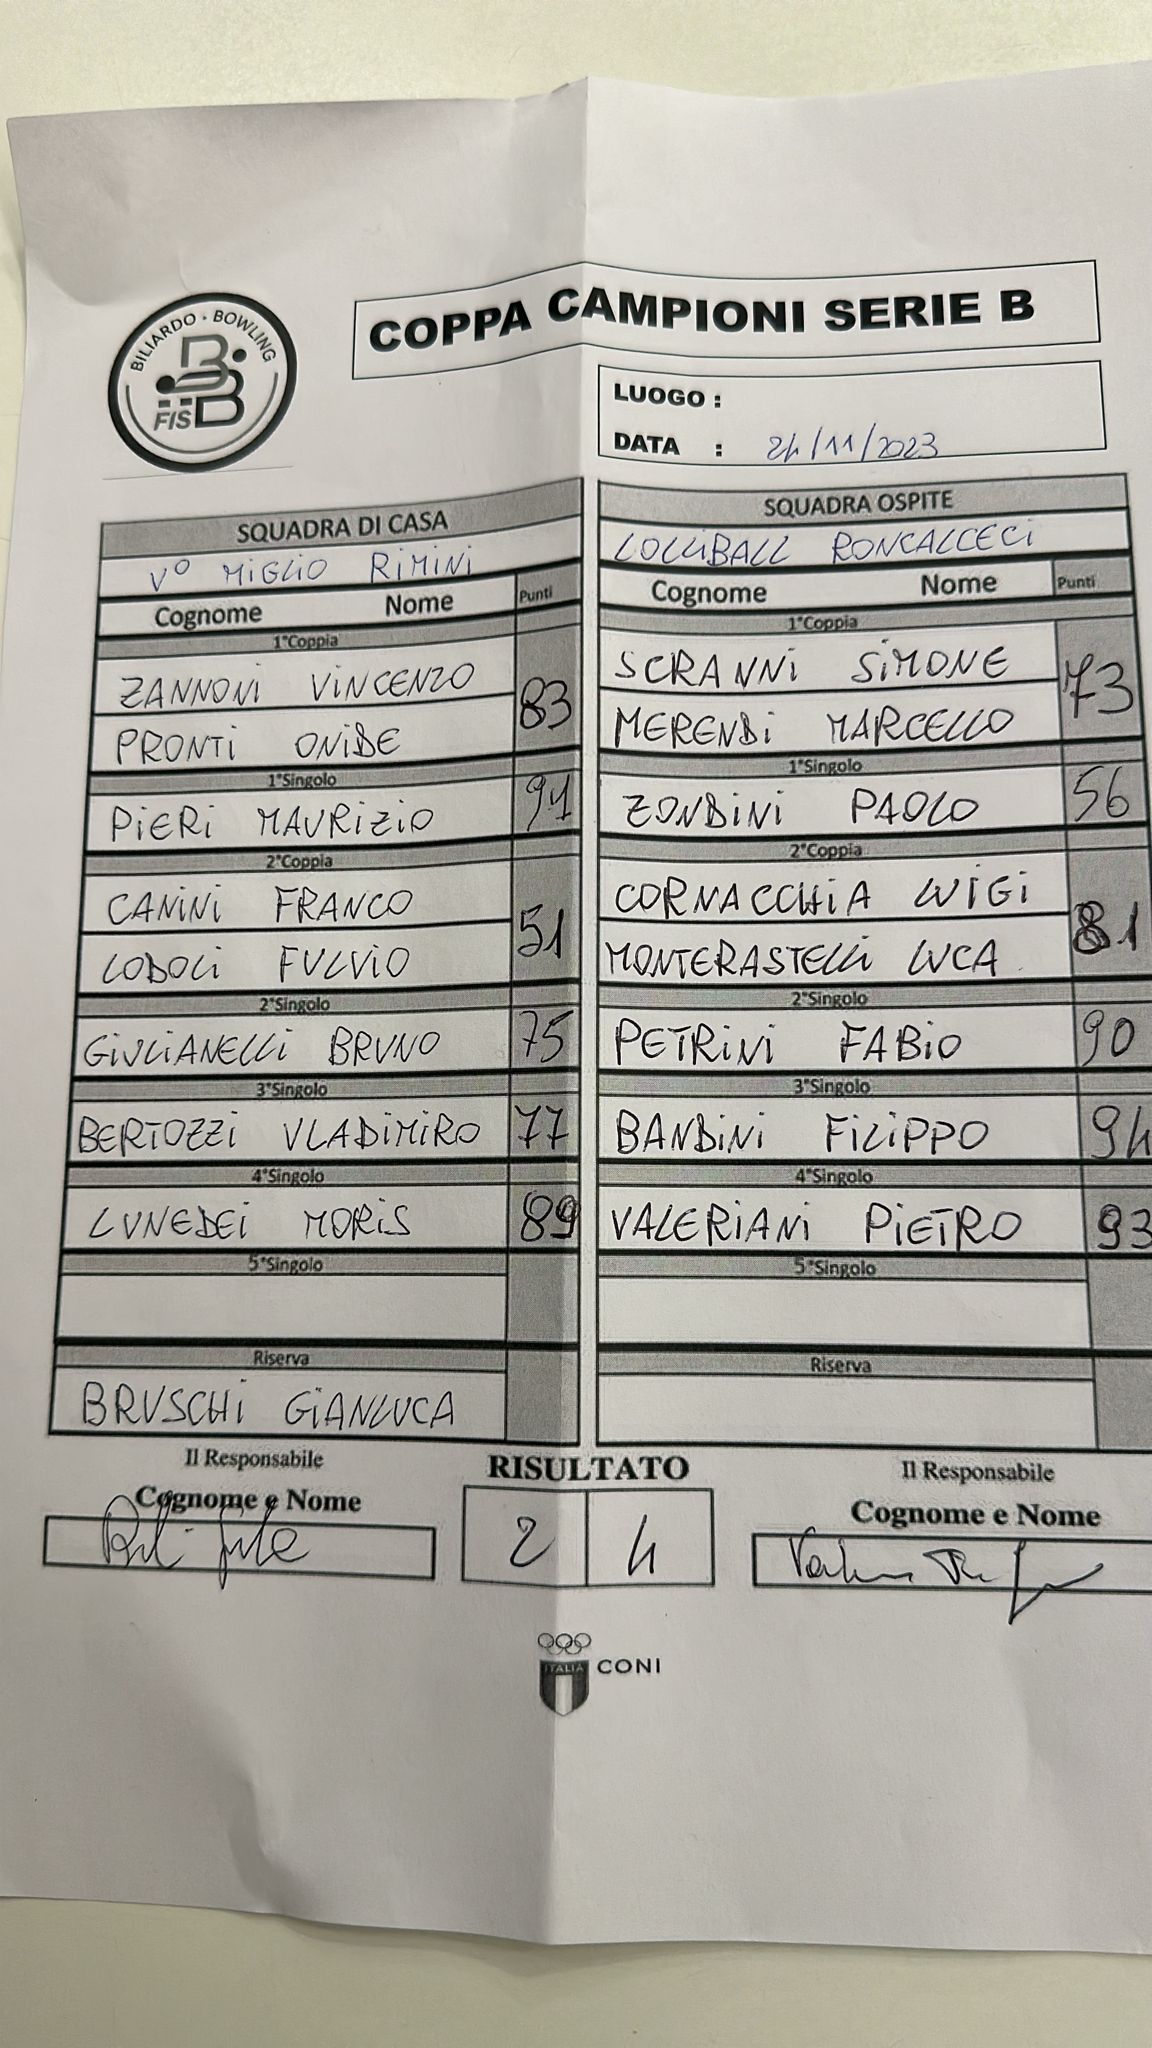 BILIARDO • BOWLING
FISBB
COPPA CAMPIONI SERIE B
LUOGO :
DATA : 24/11/2023
SQUADRA DI CASA
V° MIGLIO RIMINI
Cognome Nome Punti
1°Coppia
ZANNONI VINCENZO
83
PRONTI ONIDE
1°Singolo
PIERI MAURIZIO 91
2°Coppia
CANINI FRANCO
51
LODOLI FULVIO
2°Singolo
GIULIANELLI BRUNO 75
3°Singolo
BERTOZZI VLADIMIRO 77
4°Singolo
LUNEDEI MORIS 89
5°Singolo
Riserva
BRUSCHI GIANLUCA
SQUADRA OSPITE
LOLLIBALL RONCALCECI
Cognome Nome Punti
1°Coppia
SCRANNI SIMONE
73
MERENDI MARCELLO
1°Singolo
ZONDINI PAOLO 56
2°Coppia
CORNACCHIA LUIGI
81
MONTERASTELLI LUCA
2°Singolo
PETRINI FABIO 90
3°Singolo
BANDINI FILIPPO 94
4°Singolo
VALERIANI PIETRO 93
5°Singolo
Riserva
Il Responsabile
Cognome e Nome
RISULTATO
2 4
Il Responsabile
Cognome e Nome
ITALIA
CONI